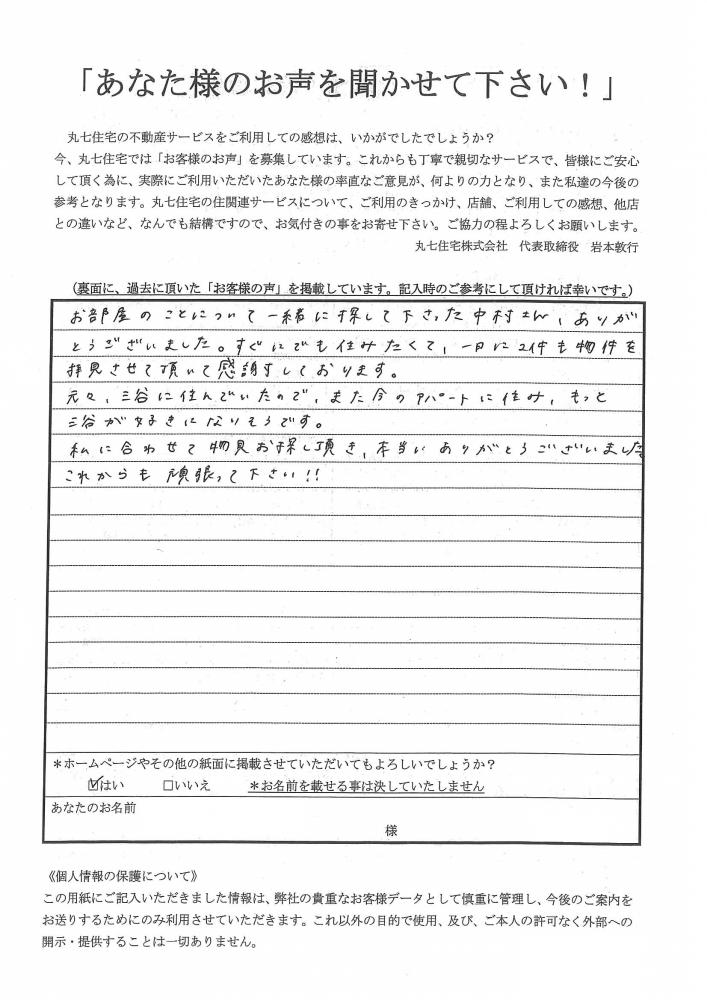 「あなた様のお声を聞かせて下さい！」
丸七住宅の不動産サービスをご利用しての感想は、いかがでしたでしょうか？
今、丸七住宅では「お客様のお声」を募集しています。これからも丁寧で親切なサービスで、皆様にご安心
して頂く為に、実際にご利用いただいたあなた様の率直なご意見が、何よりの力となり、また私達の今後の
参考となります。丸七住宅の住関連サービスについて、ご利用のきっかけ、店舗、ご利用しての感想、他店
との違いなど、なんでも結構ですので、お気付きの事をお寄せ下さい。ご協力の程よろしくお願いします。
丸七住宅株式会社　代表取締役　岩本敦行
（裏面に、過去に頂いた「お客様の声」を掲載しています。記入時のご参考にして頂ければ幸いです。）
お部屋のことについて一緒に探して下さった中村さん、ありが
とうございました。すぐにでも住みたくて、一日に2件も物件を
拝見させて頂いて感謝しております。
元々、三谷に住んでいたので、また今のアパートに住み、もっと
三谷が好きになりそうです。
私に合わせて物見お探し頂き、本当にありがとうございました
これからも頑張って下さい!!
＊ホームページやその他の紙面に掲載させていただいてもよろしいでしょうか？
☑はい　□いいえ　＊お名前を載せる事は決していたしません
あなたのお名前
様
《個人情報の保護について》
この用紙にご記入いただきました情報は、弊社の貴重なお客様データとして慎重に管理し、今後のご案内を
お送りするためにのみ利用させていただきます。これ以外の目的で使用、及び、ご本人の許可なく外部への
開示・提供することは一切ありません。